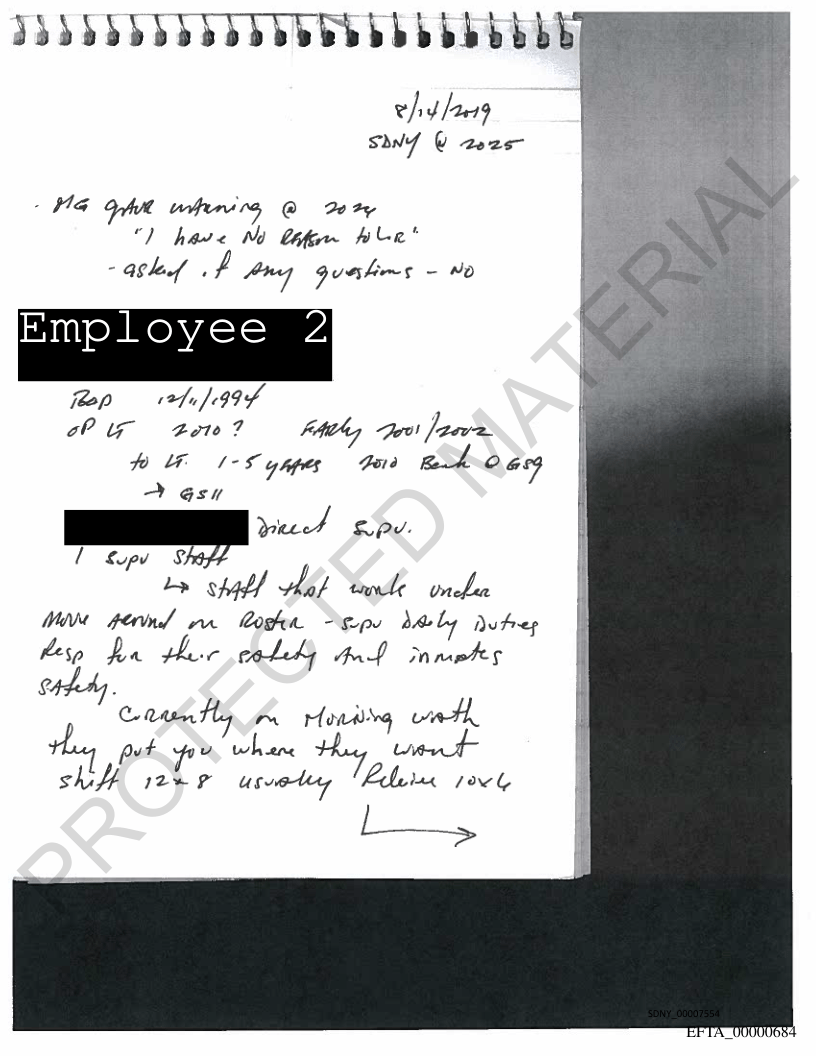 8/14/2019
SDNY @ 2025
- MG gave warning @ 2024
"I have No Reason to Lie"
- asked if Any questions - NO
Employee 2
BOP 12/11/1994
OP LT 2010? EARly 2001/2002
to LT. 1-5 years 2010 GS9
→ GS11
Direct Supv.
1 Supv Staff
↳ Staff that work under
Move Around on Roster - Supv Daily Duties
Resp for their safety And inmates
Safety.
Currently on Morning watch
they put you where they want
shift 12x8 usually Relieve 10x6
PROTECTED MATERIAL
SDNY_00007554
EFTA_00000684